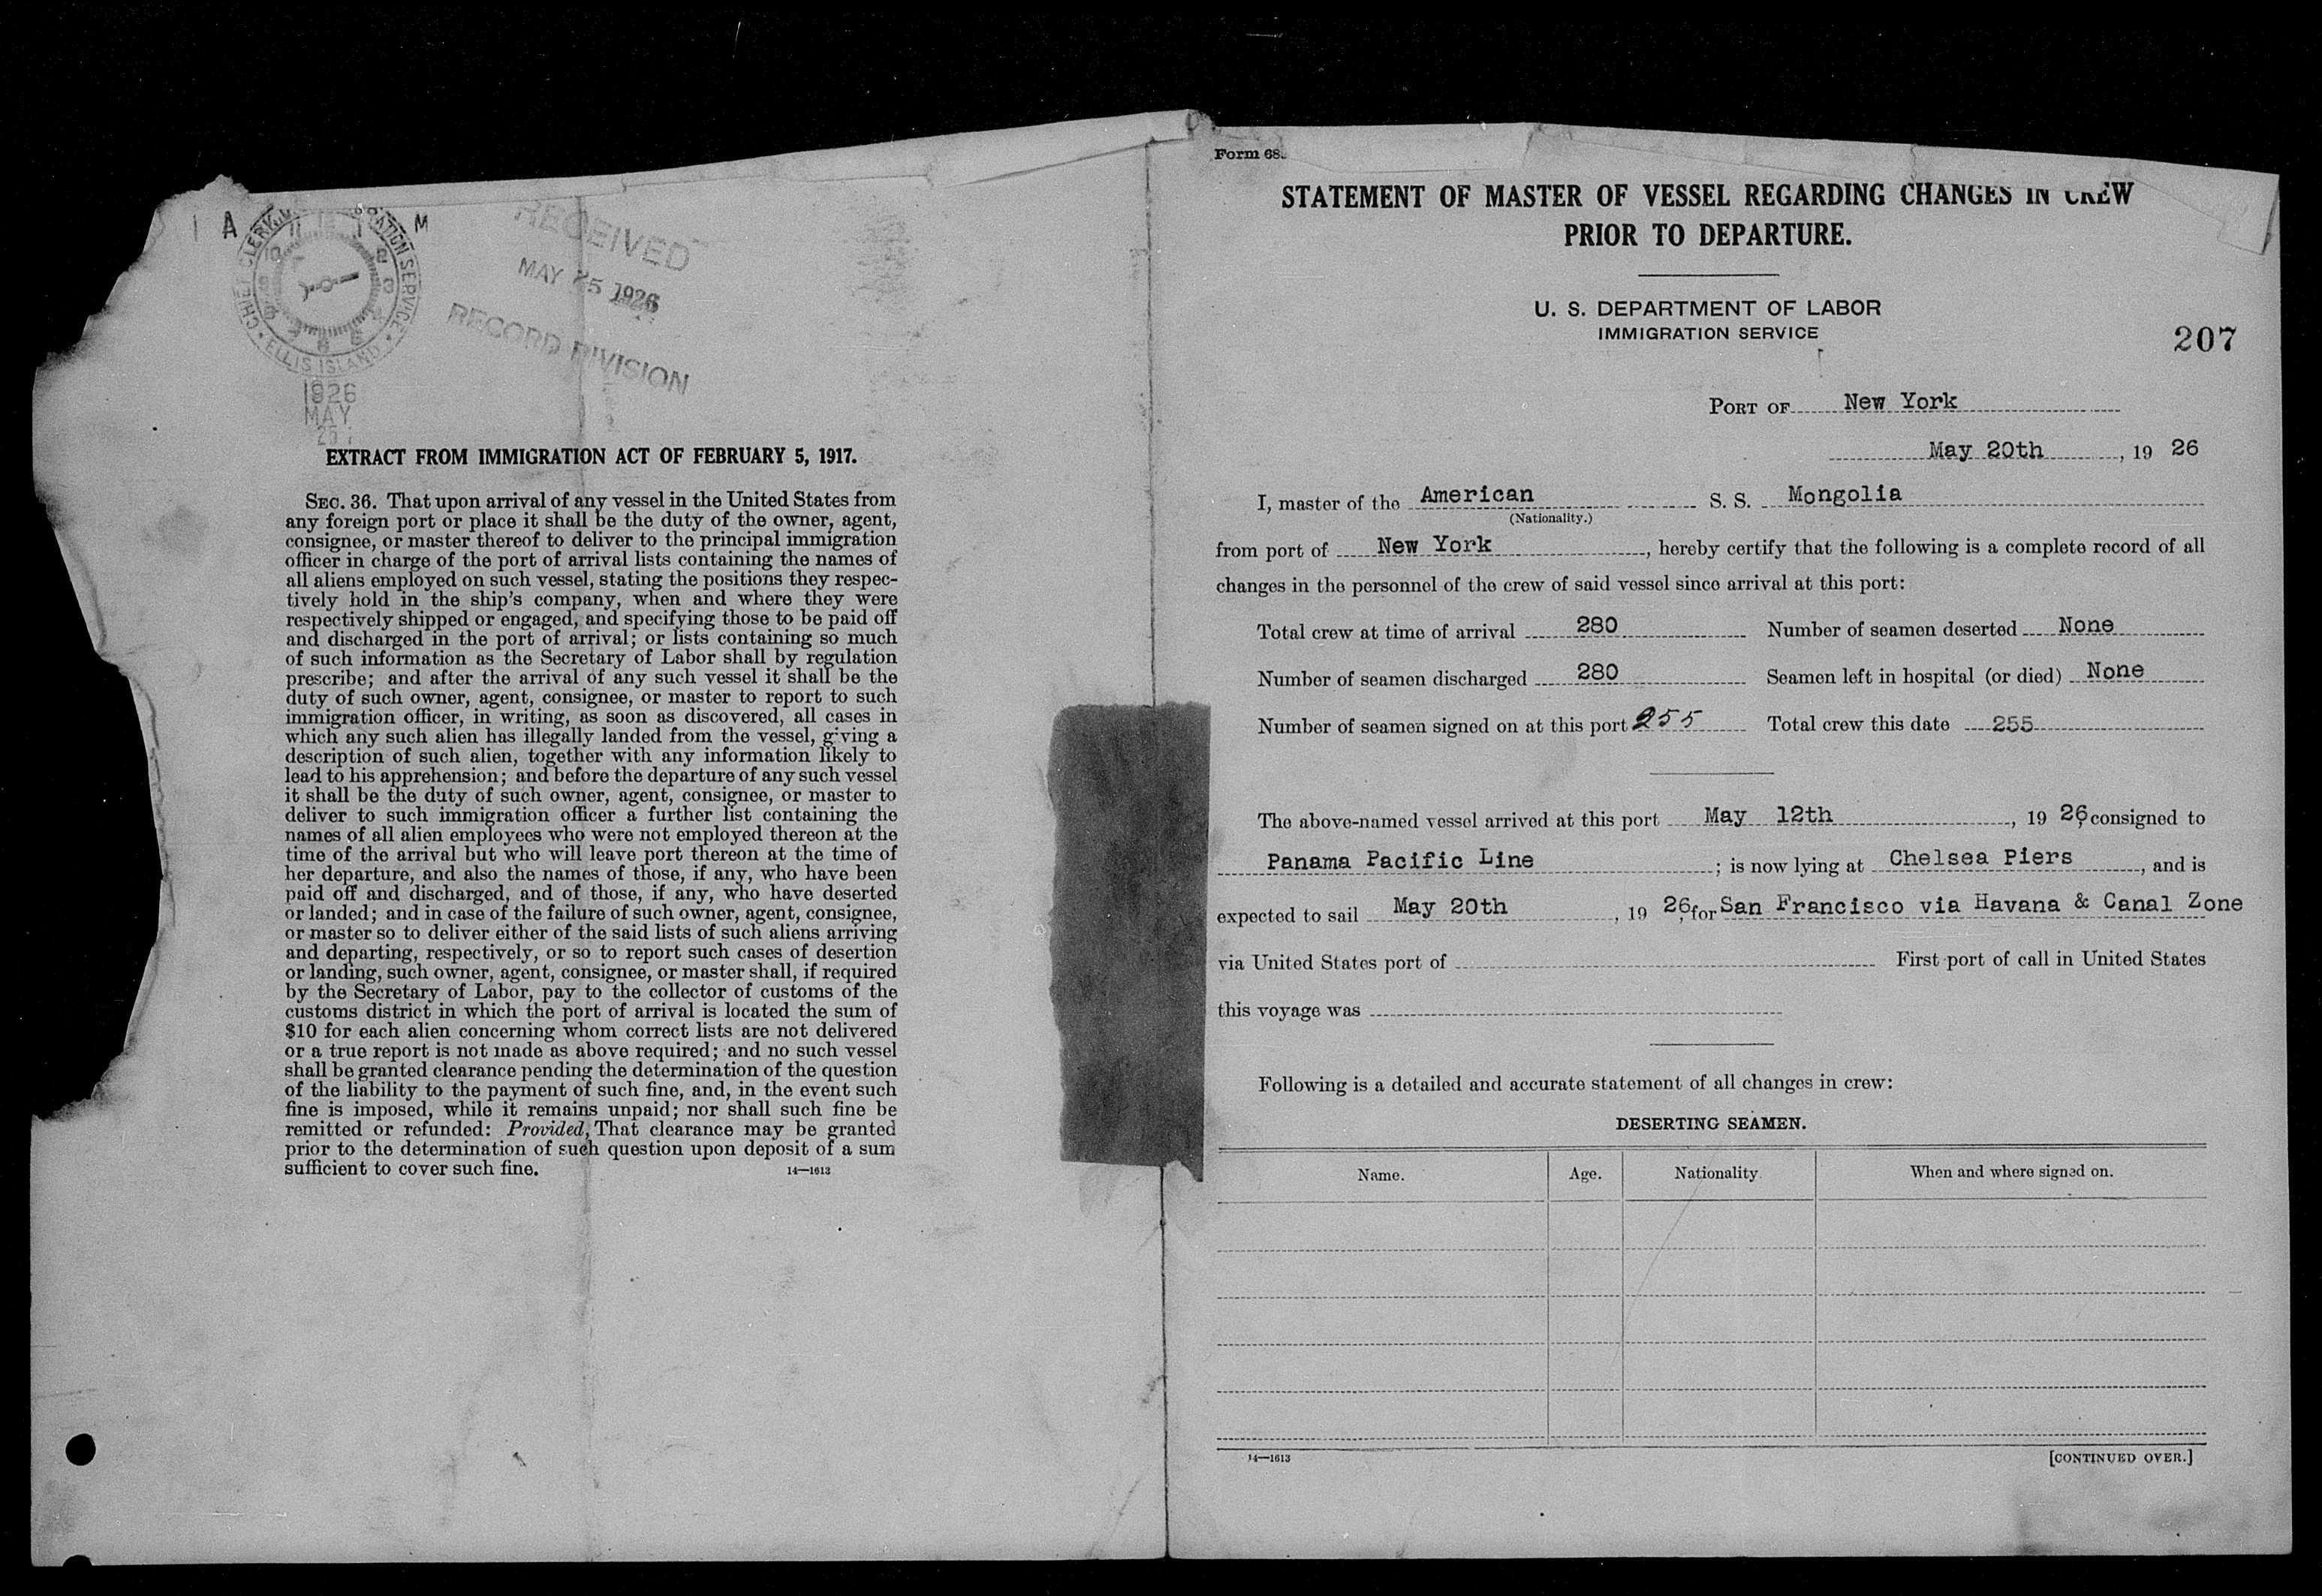 A M
CHIEF CLERK
SERVICE
ELLIS ISLAND
11 1
10 2
9 3
8 4
7 6 5
1926
MAY
25
RECEIVED
MAY 25 1926
RECORD DIVISION
EXTRACT FROM IMMIGRATION ACT OF FEBRUARY 5, 1917.
SEC. 36. That upon arrival of any vessel in the United States from
any foreign port or place it shall be the duty of the owner, agent,
consignee, or master thereof to deliver to the principal immigration
officer in charge of the port of arrival lists containing the names of
all aliens employed on such vessel, stating the positions they respec-
tively hold in the ship's company, when and where they were
respectively shipped or engaged, and specifying those to be paid off
and discharged in the port of arrival; or lists containing so much
of such information as the Secretary of Labor shall by regulation
prescribe; and after the arrival of any such vessel it shall be the
duty of such owner, agent, consignee, or master to report to such
immigration officer, in writing, as soon as discovered, all cases in
which any such alien has illegally landed from the vessel, giving a
description of such alien, together with any information likely to
lead to his apprehension; and before the departure of any such vessel
it shall be the duty of such owner, agent, consignee, or master to
deliver to such immigration officer a further list containing the
names of all alien employees who were not employed thereon at the
time of the arrival but who will leave port thereon at the time of
her departure, and also the names of those, if any, who have been
paid off and discharged, and of those, if any, who have deserted
or landed; and in case of the failure of such owner, agent, consignee,
or master so to deliver either of the said lists of such aliens arriving
and departing, respectively, or so to report such cases of desertion
or landing, such owner, agent, consignee, or master shall, if required
by the Secretary of Labor, pay to the collector of customs of the
customs district in which the port of arrival is located the sum of
$10 for each alien concerning whom correct lists are not delivered
or a true report is not made as above required; and no such vessel
shall be granted clearance pending the determination of the question
of the liability to the payment of such fine, and, in the event such
fine is imposed, while it remains unpaid; nor shall such fine be
remitted or refunded: Provided, That clearance may be granted
prior to the determination of such question upon deposit of a sum
sufficient to cover such fine. 14—1613
Form 68
STATEMENT OF MASTER OF VESSEL REGARDING CHANGES IN CREW
PRIOR TO DEPARTURE.
U. S. DEPARTMENT OF LABOR
IMMIGRATION SERVICE
207
PORT OF New York
May 20th, 19 26
I, master of the American S. S. Mongolia
(Nationality.)
from port of New York, hereby certify that the following is a complete record of all
changes in the personnel of the crew of said vessel since arrival at this port:
Total crew at time of arrival 280 Number of seamen deserted None
Number of seamen discharged 280 Seamen left in hospital (or died) None
Number of seamen signed on at this port 255 Total crew this date 255
The above-named vessel arrived at this port May 12th, 19 26, consigned to
Panama Pacific Line; is now lying at Chelsea Piers, and is
expected to sail May 20th, 19 26, for San Francisco via Havana & Canal Zone
via United States port of First port of call in United States
this voyage was
Following is a detailed and accurate statement of all changes in crew:
DESERTING SEAMEN.
Name. Age. Nationality. When and where signed on.
14—1613 [CONTINUED OVER.]